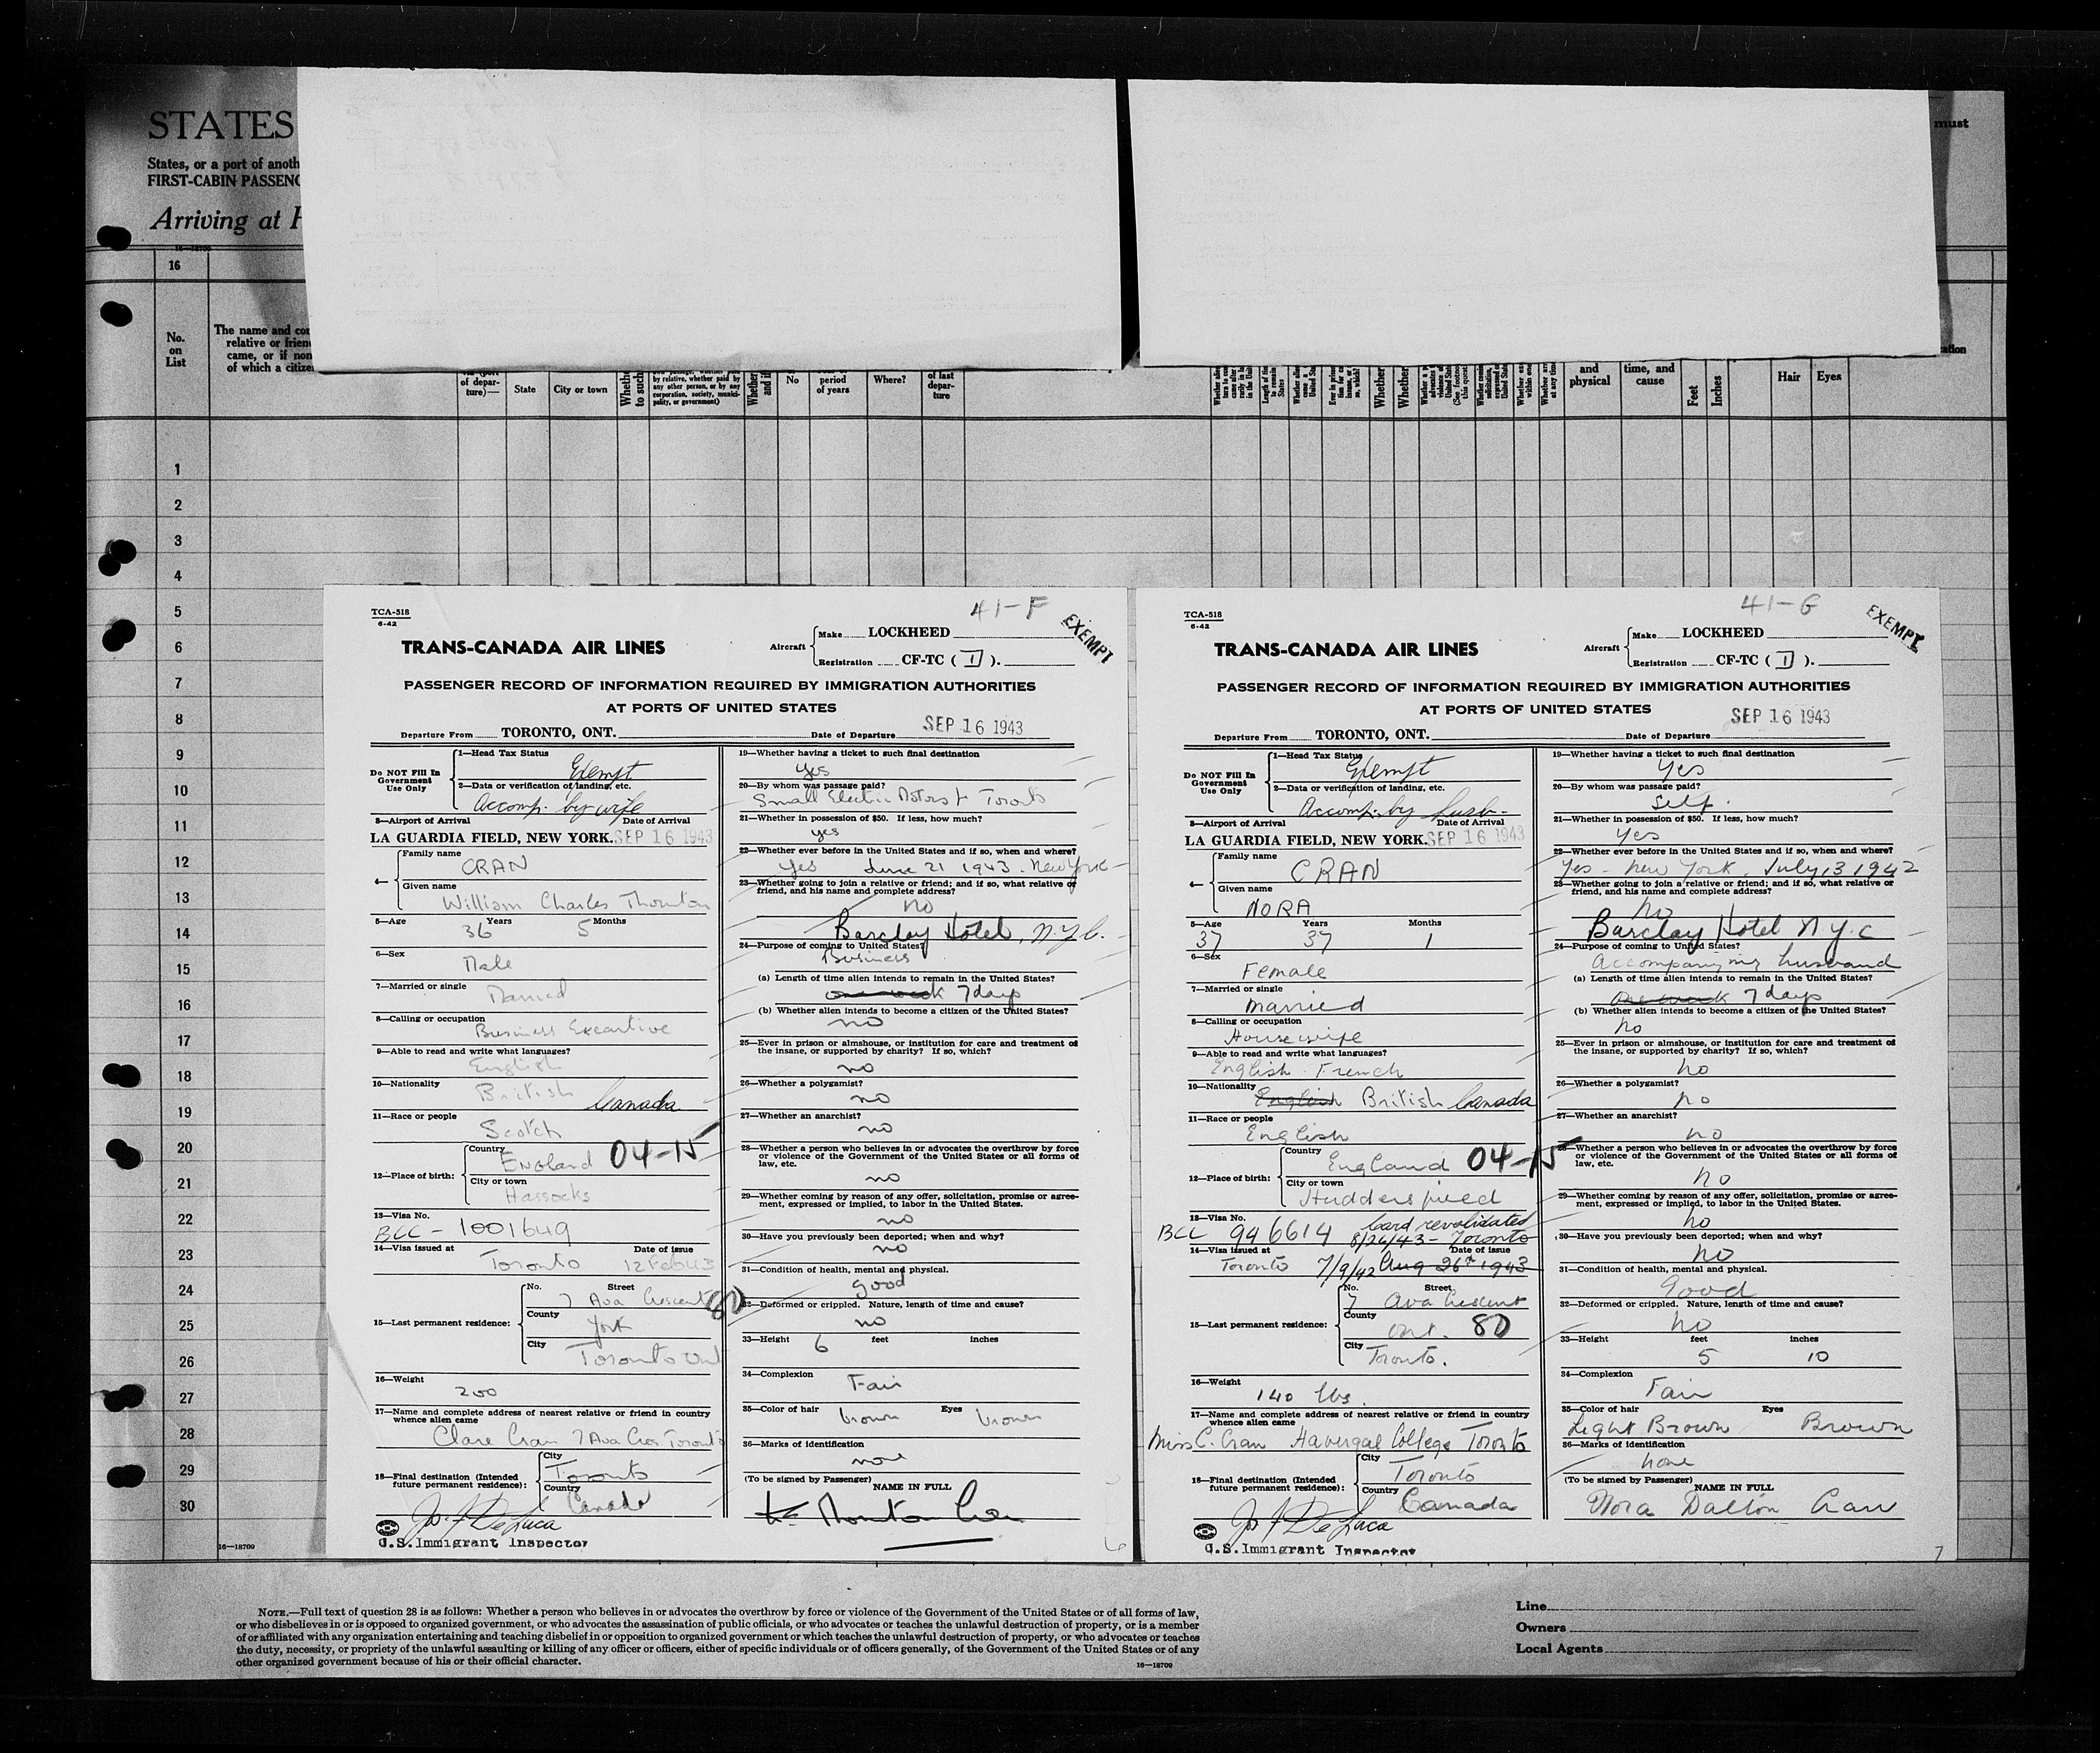 STATES
States, or a port of anoth
FIRST-CABIN PASSENG
Arriving at
must
16
No.
on
List
The name and con
relative or frien
came, or if non
of which a citize
of depar-
ture)—
State
City or town
Whethe
to such
by relative, whether paid by
any other person, or by any
corporation, society, munici-
pality, or government)
Whether
and if
No
period
of years
Where?
of last
depar-
ture
Whether
Whether
and
physical
time, and
cause
Feet
Inches
Hair
Eyes
1
2
3
4
5
6
7
8
9
10
11
12
13
14
15
16
17
18
19
20
21
22
23
24
25
26
27
28
29
30
16—18709
TCA-518
6-42
41-F
EXEMPT
TRANS-CANADA AIR LINES
Aircraft
Make LOCKHEED
Registration CF-TC ( I ).
PASSENGER RECORD OF INFORMATION REQUIRED BY IMMIGRATION AUTHORITIES
AT PORTS OF UNITED STATES
Departure From TORONTO, ONT. Date of Departure SEP 16 1943
Do NOT Fill In
Government
Use Only
1—Head Tax Status
Exempt
2—Data or verification of landing, etc.
Accomp. by wife
3—Airport of Arrival Date of Arrival
LA GUARDIA FIELD, NEW YORK. SEP 16 1943
4—
Family name
CRAN
Given name
William Charles Thornton
5—Age Years Months
36 5
6—Sex
Male
7—Married or single
Married
8—Calling or occupation
Business Executive
9—Able to read and write what languages?
English
10—Nationality
British Canada
11—Race or people
Scotch
12—Place of birth:
Country
England 04-15
City or town
Hassocks
13—Visa No.
BCC - 1001649
14—Visa issued at Date of issue
Toronto 12 Feb 43
15—Last permanent residence:
No. Street
7 Ava Crescent 80
County
York
City
Toronto Ont
16—Weight
200
17—Name and complete address of nearest relative or friend in country
whence alien came
Clare Cran 7 Ava Cres Toronto
18—Final destination (Intended
future permanent residence):
City
Toronto
Country
Canada
Jos. J. De Luca
U.S. Immigrant Inspector
19—Whether having a ticket to such final destination
yes
20—By whom was passage paid?
Small Electric Motors Toronto
21—Whether in possession of $50. If less, how much?
yes
22—Whether ever before in the United States and if so, when and where?
Yes June 21 1943. New York
23—Whether going to join a relative or friend; and if so, what relative or
friend, and his name and complete address?
no
Barclay Hotel, N.Y.C.
24—Purpose of coming to United States?
Business
(a) Length of time alien intends to remain in the United States?
one week 7 days
(b) Whether alien intends to become a citizen of the United States?
no
25—Ever in prison or almshouse, or institution for care and treatment of
the insane, or supported by charity? If so, which?
no
26—Whether a polygamist?
no
27—Whether an anarchist?
no
28—Whether a person who believes in or advocates the overthrow by force
or violence of the Government of the United States or all forms of
law, etc.
no
29—Whether coming by reason of any offer, solicitation, promise or agree-
ment, expressed or implied, to labor in the United States.
no
30—Have you previously been deported; when and why?
no
31—Condition of health, mental and physical.
good
32—Deformed or crippled. Nature, length of time and cause?
no
33—Height feet inches
6
34—Complexion
Fair
35—Color of hair Eyes
brown brown
36—Marks of identification
none
(To be signed by Passenger)
NAME IN FULL
Thornton Cran
6
TCA-518
6-42
41-G
EXEMPT
TRANS-CANADA AIR LINES
Aircraft
Make LOCKHEED
Registration CF-TC ( I ).
PASSENGER RECORD OF INFORMATION REQUIRED BY IMMIGRATION AUTHORITIES
AT PORTS OF UNITED STATES
Departure From TORONTO, ONT. Date of Departure SEP 16 1943
Do NOT Fill In
Government
Use Only
1—Head Tax Status
Exempt
2—Data or verification of landing, etc.
Accomp. by husb.
3—Airport of Arrival Date of Arrival
LA GUARDIA FIELD, NEW YORK. SEP 16 1943
4—
Family name
CRAN
Given name
NORA
5—Age Years Months
37 37 1
6—Sex
Female
7—Married or single
Married
8—Calling or occupation
Housewife
9—Able to read and write what languages?
English French
10—Nationality
English British Canada
11—Race or people
English
12—Place of birth:
Country
England 04-15
City or town
Huddersfield
13—Visa No.
BCC 946614 Card revalidated
8/26/43 - Toronto
14—Visa issued at Date of issue
Toronto 7/9/42 Aug 26th 1943
15—Last permanent residence:
No. Street
7 Ava Crescent
County
Ont. 80
City
Toronto.
16—Weight
140 lbs.
17—Name and complete address of nearest relative or friend in country
whence alien came
Miss C. Cran Havergal College Toronto
18—Final destination (Intended
future permanent residence):
City
Toronto
Country
Canada
Jos. J. De Luca
U.S. Immigrant Inspector
19—Whether having a ticket to such final destination
yes
20—By whom was passage paid?
self.
21—Whether in possession of $50. If less, how much?
Yes
22—Whether ever before in the United States and if so, when and where?
Yes - New York. July 13 1942
23—Whether going to join a relative or friend; and if so, what relative or
friend, and his name and complete address?
no
Barclay Hotel N.Y.C
24—Purpose of coming to United States?
Accompanying husband
(a) Length of time alien intends to remain in the United States?
One week 7 days
(b) Whether alien intends to become a citizen of the United States?
no
25—Ever in prison or almshouse, or institution for care and treatment of
the insane, or supported by charity? If so, which?
no
26—Whether a polygamist?
no
27—Whether an anarchist?
no
28—Whether a person who believes in or advocates the overthrow by force
or violence of the Government of the United States or all forms of
law, etc.
no
29—Whether coming by reason of any offer, solicitation, promise or agree-
ment, expressed or implied, to labor in the United States.
no
30—Have you previously been deported; when and why?
no
31—Condition of health, mental and physical.
Good
32—Deformed or crippled. Nature, length of time and cause?
no
33—Height feet inches
5 10
34—Complexion
Fair
35—Color of hair Eyes
Light Brown Brown
36—Marks of identification
none
(To be signed by Passenger)
NAME IN FULL
Nora Dalton Cran
7
NOTE.—Full text of question 28 is as follows: Whether a person who believes in or advocates the overthrow by force or violence of the Government of the United States or of all forms of law,
or who disbelieves in or is opposed to organized government, or who advocates the assassination of public officials, or who advocates or teaches the unlawful destruction of property, or is a member
of or affiliated with any organization entertaining and teaching disbelief in or opposition to organized government or which teaches the unlawful destruction of property, or who advocates or teaches
the duty, necessity, or propriety of the unlawful assaulting or killing of any officer or officers, either of specific individuals or of officers generally, of the Government of the United States or of any
other organized government because of his or their official character.
16—18709
Line
Owners
Local Agents